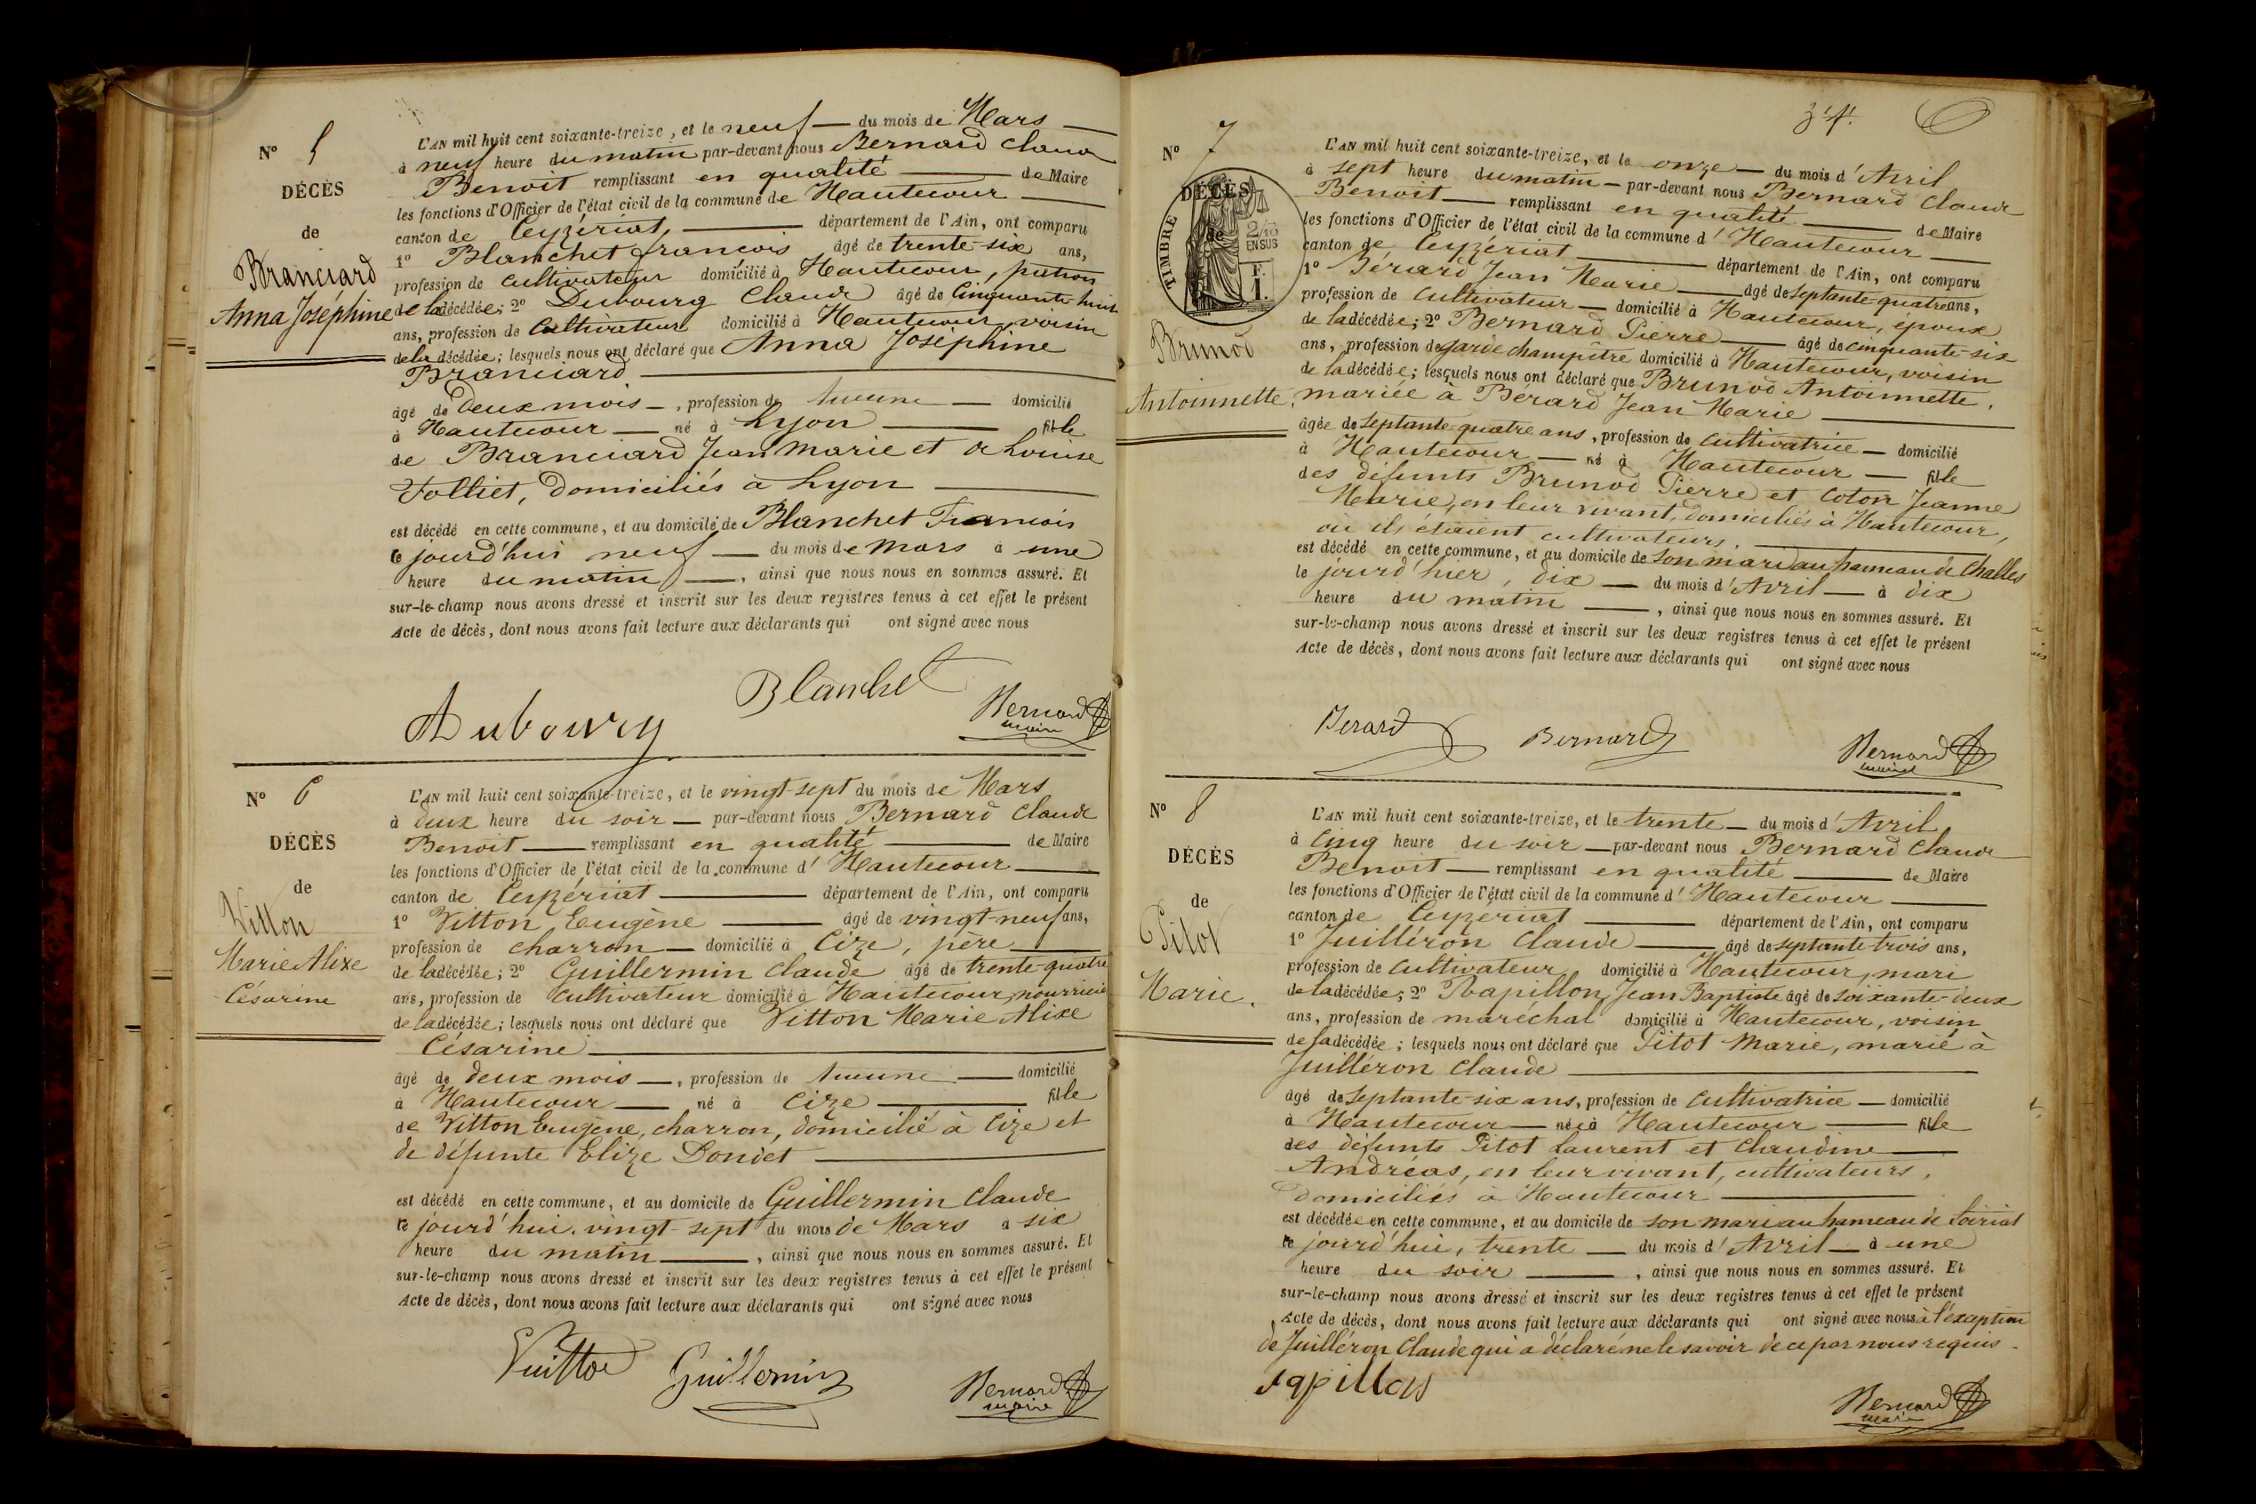 N° 5
DÉCÈS
de
Branciard
Anna Joséphine
L'AN mil huit cent soixante-treize, et le neuf du mois de Mars
à neuf heure du matin par-devant nous Bernard Claude
Benoit remplissant en qualité de Maire
les fonctions d'Officier de l'état civil de la commune de Hautecour
canton de Ceyzériat, département de l'Ain, ont comparu
1° Blanchet françois âgé de trente-six ans,
profession de cultivateur domicilié à Hautecour, patron
de la décédée; 2° Dubourg Claude âgé de Cinquante-huit
ans, profession de Cultivateur domicilié à Hautecour voisin
de la décédée; lesquels nous ont déclaré que Anna Joséphine
Branciard
âgé de deux mois, profession de Aucune domicilié
à Hautecour né à Lyon fille
de Branciard Jean Marie et de Louise
Folliet, domiciliés à Lyon
est décédé en cette commune, et au domicile de Blanchet François
le jourd'hui neuf du mois de Mars à une
heure du matin, ainsi que nous nous en sommes assuré. Et
sur-le-champ nous avons dressé et inscrit sur les deux registres tenus à cet effet le présent
Acte de décès, dont nous avons fait lecture aux déclarants qui ont signé avec nous
Blanchet
Dubourg
Bernard
maire
N° 6
DÉCÈS
de
Vitton
Marie Alixe
Césarine
L'AN mil huit cent soixante-treize, et le vingt-sept du mois de Mars
à deux heure du soir par-devant nous Bernard Claude
Benoit remplissant en qualité de Maire
les fonctions d'Officier de l'état civil de la commune d'Hautecour
canton de Ceyzériat département de l'Ain, ont comparu
1° Vitton Eugène âgé de vingt-neuf ans,
profession de charron domicilié à Cize, père
de la décédée; 2° Guillermin Claude âgé de trente-quatre
ans, profession de cultivateur domicilié à Hautecour, nourricier
de la décédée; lesquels nous ont déclaré que Vitton Marie Alixe
Césarine
âgé de deux mois, profession de Aucune domicilié
à Hautecour né à Cize fille
de Vitton Eugène, charron, domicilié à Cize et
de défunte Elize Dondet
est décédé en cette commune, et au domicile de Guillermin Claude
le jourd'hui vingt-sept du mois de Mars à six
heure du matin, ainsi que nous nous en sommes assuré. Et
sur-le-champ nous avons dressé et inscrit sur les deux registres tenus à cet effet le présent
Acte de décès, dont nous avons fait lecture aux déclarants qui ont signé avec nous
Vuitton Guillermin
Bernard
maire
N° 7
DÉCÈS
de
TIMBRE
2/10
EN SUS
F.
1.
Brunod
Antoinnette.
L'AN mil huit cent soixante-treize, et le onze du mois d'Avril
à sept heure du matin par-devant nous Bernard Claude
Benoit remplissant en qualité de Maire
les fonctions d'Officier de l'état civil de la commune d'Hautecour
canton de Ceyzériat département de l'Ain, ont comparu
1° Bérard Jean Marie âgé de septante-quatre ans,
profession de cultivateur domicilié à Hautecour, époux
de la décédée; 2° Bernard Pierre âgé de cinquante-six
ans, profession de garde champêtre domicilié à Hautecour, voisin
de la décédée; lesquels nous ont déclaré que Brunod Antoinnette,
mariée à Bérard Jean Marie
âgée de septante-quatre ans, profession de cultivatrice domicilié
à Hautecour né à Hautecour fille
des défunts Brunod Pierre et Coton Jeanne
Marie, en leur vivant, domiciliés à Hautecour,
où ils étaient cultivateurs.
est décédé en cette commune, et au domicile de son mari au hameau de Challes
le jourd'hier, dix du mois d'Avril à dix
heure du matin, ainsi que nous nous en sommes assuré. Et
sur-le-champ nous avons dressé et inscrit sur les deux registres tenus à cet effet le présent
Acte de décès, dont nous avons fait lecture aux déclarants qui ont signé avec nous
Berard Bernard
Bernard
maire
N° 8
DÉCÈS
de
Pitot
Marie.
L'AN mil huit cent soixante-treize, et le trente du mois d'Avril
à Cinq heure du soir par-devant nous Bernard Claude
Benoit remplissant en qualité de Maire
les fonctions d'Officier de l'état civil de la commune d'Hautecour
canton de Ceyzériat département de l'Ain, ont comparu
1° Juilléron Claude âgé de septante-trois ans,
profession de cultivateur domicilié à Hautecour, mari
de la décédée; 2° Papillon, Jean Baptiste âgé de soixante-deux
ans, profession de maréchal domicilié à Hautecour, voisin
de la décédée; lesquels nous ont déclaré que Pitot Marie, marié à
Juilléron Claude
âgé de septante-six ans, profession de cultivatrice domicilié
à Hautecour né à Hautecour fille
des défunts Pitot Laurent et Claudine
Andréas, en leur vivant, cultivateurs,
domiciliés à Hautecour
est décédée en cette commune, et au domicile de son mari au hameau de Soiriat
le jourd'hui, trente du mois d'Avril à une
heure du soir, ainsi que nous nous en sommes assuré. Et
sur-le-champ nous avons dressé et inscrit sur les deux registres tenus à cet effet le présent
Acte de décès, dont nous avons fait lecture aux déclarants qui ont signé avec nous à l'exception
de Juilléron Claude qui a déclaré ne le savoir de ce par nous requis.
papillon
Bernard
maire